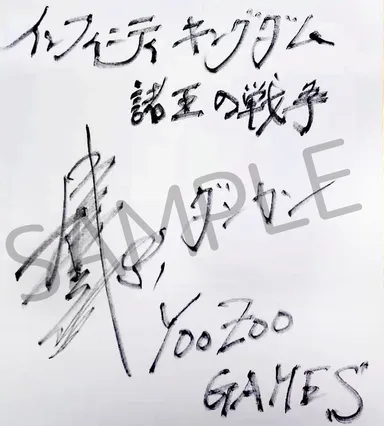 インフィニティ キングダム
諸王の戦争
ダンガー
YOOZOO
GAMES
SAMPLE